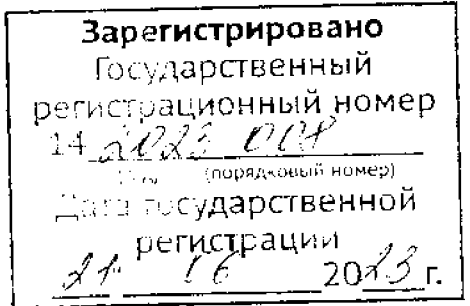 Зарегистрировано
Государственный
регистрационный номер
14 2023
(порядковый номер)
Дата государственной
регистрации
21 2023 г.